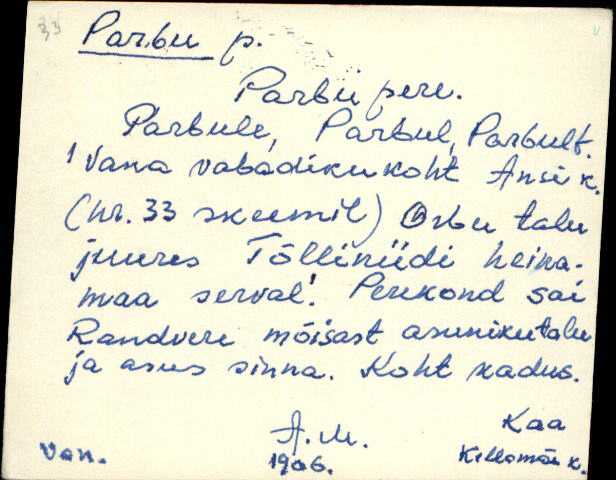 33
Parbu p.
Parbu pere.
Parbule, Parbul, Parbult.
Vana vabadikukoht Ansi k.
(nr. 33 skeemil) Orbu talu
juures Tõlliniidi heina-
maa serval. Perekond sai
Randvere mõisast asunikutalu
ja asus sinna. Koht kadus.
A. M.
1906.
Kaa
Van.
Kellamäe k.